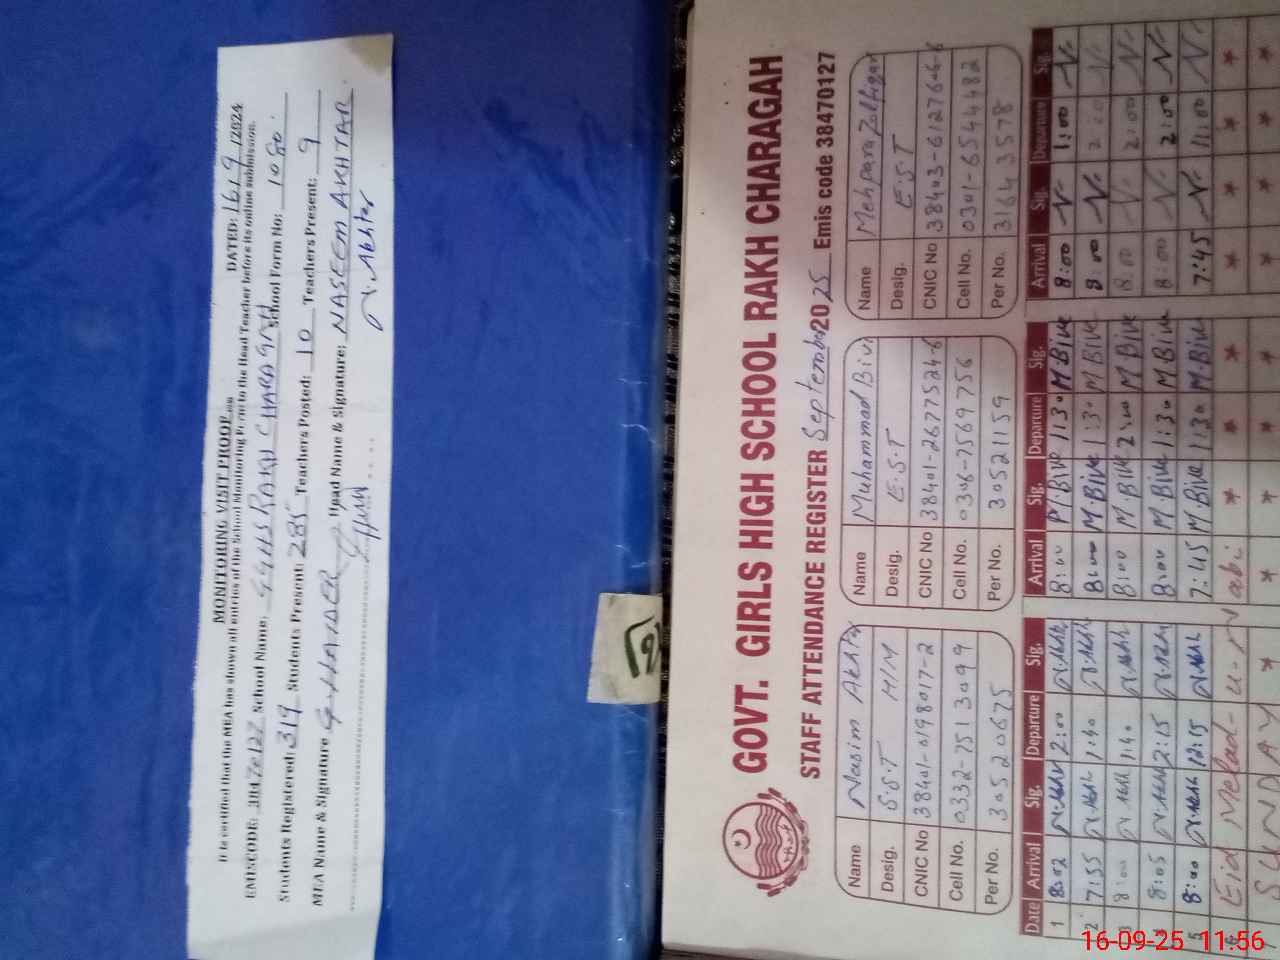 MONITORING VISIT PROOF
DATED: 16/9/2024
It is certified that the MEA has shown all entries of the School Monitoring Form to the Head Teacher before its online submission.
EMISCODE: 38470127 School Name: GGHS RAKH CHARAGAH School Form No: 1080
Students Registered: 319 Students Present: 285 Teachers Posted: 10 Teachers Present: 9
MEA Name & Signature G. HAIDER Head Name & Signature: NASEEM AKHTAR
N.Akhtar
GOVT. GIRLS HIGH SCHOOL RAKH CHARAGAH
STAFF ATTENDANCE REGISTER September 2025 Emis code 38470127
Name Nasim Akhtar
Desig. S.S.T H/M
CNIC No 38401-0198017-2
Cell No. 0332-7513099
Per No. 30520675
Name Muhammad Bivi
Desig. E.S.T
CNIC No 38401-2677524-6
Cell No. 0306-7569756
Per No. 30521159
Name Mehpara Zulfiqar
Desig. E.S.T
CNIC No 38403-6127646-6
Cell No. 0301-6544482
Per No. 31643578
Date Arrival Sig. Departure Sig. Arrival Sig. Departure Sig. Arrival Sig. Departure Sig.
1 8:02 N.Akhtr 2:00 N.Akhtr 8:00 M.Bive 1:30 M.Bive 8:00 1:00
2 7:55 N.Akhtr 1:40 N.Akhtr 8:00 M.Bive 1:30 M.Bive 8:00 2:00
3 8:00 N.Akhtr 1:40 N.Akhtr 8:00 M.Bive 2:00 M.Bive 8:00 2:00
4 8:05 N.Akhtr 2:15 N.Akhtr 8:00 M.Bive 1:30 M.Bive 8:00 2:00
5 8:00 N.Akhtr 12:15 N.Akhtr 7:45 M.Bive 11:30 M.Bive 7:45 11:00
6 Eid Melad-u-n Nabi * * * * * *
7 SUNDAY * * * * * * *
16-09-25 11:56